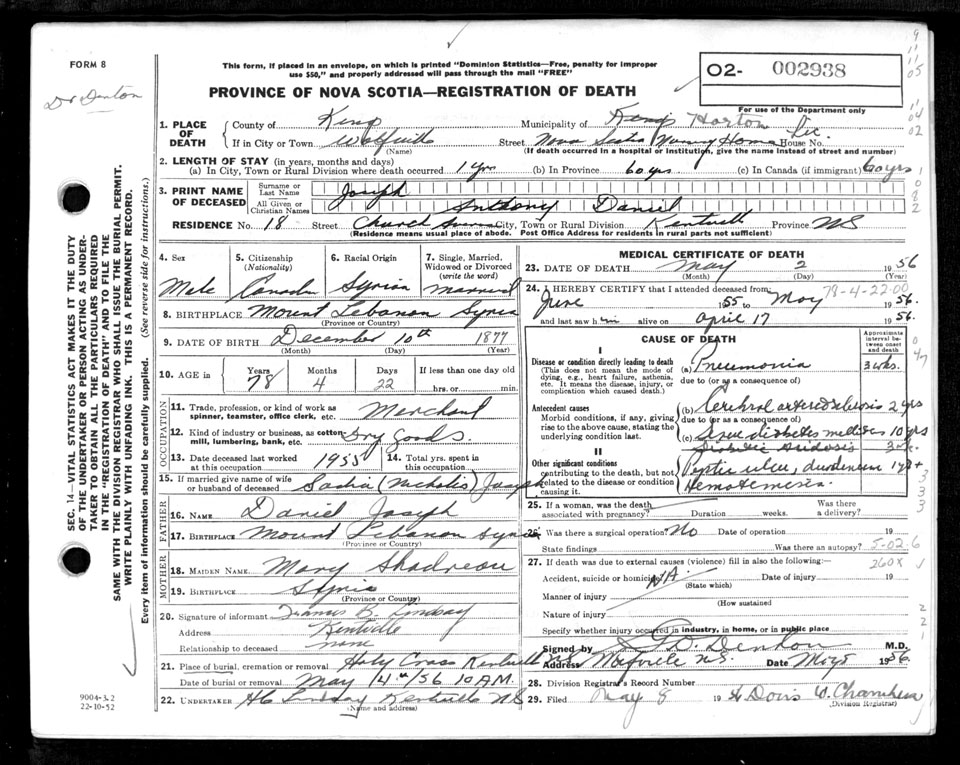 FORM 8
This form, if placed in an envelope, on which is printed "Dominion Statistics—Free, penalty for improper
use $50," and properly addressed will pass through the mail "FREE"
02- 002938
PROVINCE OF NOVA SCOTIA—REGISTRATION OF DEATH
For use of the Department only
Dr Denton
1. PLACE OF DEATH
County of Kings Municipality of Kings Horton
If in City or Town Wolfville Street Nova Scotia Nursing Home House No.
(Name) (If death occurred in a hospital or institution, give the name instead of street and number)
2. LENGTH OF STAY (in years, months and days)
(a) In City, Town or Rural Division where death occurred 1 yr (b) In Province 60 yrs. (c) In Canada (if immigrant) 60 yrs
3. PRINT NAME OF DECEASED
Surname or Last Name Joseph
All Given or Christian Names Anthony Daniel
RESIDENCE No. 18 Street Church City, Town or Rural Division Kentville Province NS
(Residence means usual place of abode. Post Office Address for residents in rural parts not sufficient)
4. Sex
Male
5. Citizenship
(Nationality)
Canadian
6. Racial Origin
Syrian
7. Single, Married,
Widowed or Divorced
(write the word)
married
8. BIRTHPLACE Mount Lebanon Syria
(Province or Country)
9. DATE OF BIRTH December 10th 1877
(Month) (Day) (Year)
10. AGE in
Years Months Days If less than one day old
78 4 22 hrs. or min.
OCCUPATION
11. Trade, profession, or kind of work as
spinner, teamster, office clerk, etc. Merchant
12. Kind of industry or business, as cotton-
mill, lumbering, bank, etc. Dry Goods.
13. Date deceased last worked
at this occupation 1955
14. Total yrs. spent in
this occupation
15. If married give name of wife
or husband of deceased Sadia (Nicholis) Joseph
FATHER
16. Name Daniel Joseph
17. Birthplace Mount Lebanon Syria
(Province or Country)
MOTHER
18. Maiden Name Mary
19. Birthplace Syria
(Province or Country)
20. Signature of informant Francis B. Lindsay
Address Kentville
Relationship to deceased none
21. Place of burial, cremation or removal Holy Cross Kentville
Date of burial or removal May 4th/56 10 A.M.
22. Undertaker HB Lindsay Kentville NS
(Name and address)
MEDICAL CERTIFICATE OF DEATH
23. DATE OF DEATH May 2 1956
(Month) (Day) (Year)
78-4-22-00
24. I HEREBY CERTIFY that I attended deceased from:
June 1955 to May 1956.
and last saw him alive on April 17 1956.
CAUSE OF DEATH
Approximate interval between onset and death
I
Disease or condition directly leading to death
(This does not mean the mode of
dying, e.g., heart failure, asthenia,
etc. It means the disease, injury, or
complication which caused death.)
(a) Pneumonia 3 wks.
due to (or as a consequence of)
Antecedent causes
Morbid conditions, if any, giving
rise to the above cause, stating the
underlying condition last.
(b) Cerebral arteriosclerosis 2 yrs
due to (or as a consequence of)
(c) diabetes mellitus 10 yrs
Diabetic Acidosis
II
Other significant conditions
contributing to the death, but not
related to the disease or condition
causing it.
Peptic ulcer, duodenum 1 yr +
Hematemesis.
25. If a woman, was the death
associated with pregnancy? Duration weeks. Was there a delivery?
26. Was there surgical operation? No Date of operation 19
State findings Was there an autopsy?
5-02.6
27. If death was due to external causes (violence) fill in also the following:
260X
Accident, suicide or homicide? NA Date of injury 19
(State which)
Manner of injury
(How sustained
Nature of injury
Specify whether injury occurred in industry, in home, or in public place
Signed by Denton M.D.
Address Wolfville N.S. Date May 5 1956.
28. Division Registrar's Record Number
29. Filed May 8 1956 Doris W. Chambers
(Division Registrar)
SEC. 14—VITAL STATISTICS ACT MAKES IT THE DUTY
OF THE UNDERTAKER OR PERSON ACTING AS UNDER-
TAKER TO OBTAIN ALL THE PARTICULARS REQUIRED
IN THE "REGISTRATION OF DEATH" AND TO FILE THE
SAME WITH THE DIVISION REGISTRAR WHO SHALL ISSUE THE BURIAL PERMIT.
WRITE PLAINLY WITH UNFADING INK. THIS IS A PERMANENT RECORD.
Every item of information should be carefully supplied. (See reverse side for instructions.)
9004-3.2
22-10-52